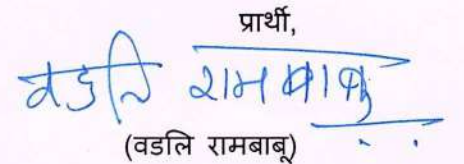 प्रार्थी,
वडलि रामबाबु
(वडलि रामबाबू)